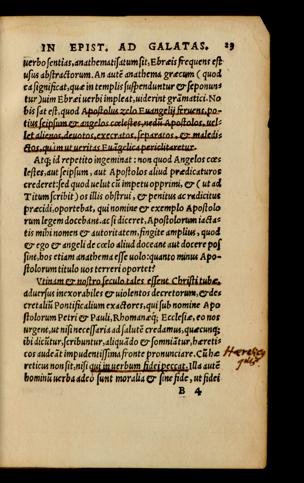 IN EPIST. AD GALATAS. 29
uerbo sentias, anathematisatum sit, Ebræis frequens est
usus abstractorum. An autē anathema græcum (quod
ea significat, quæ in templis suspenduntur & seponun=
tur) uim Ebræi uerbi impleat, uiderint grāmatici. No
bis sat est, quod Apostolus zelo Euangelij feruens, po=
tius seipsum & angelos cœlestes, nedū Apostolos, uel=
let alienos, deuotos, execratos, separatos, & maledi=
ctos, quàm ut ueritas Euāgelica periclitaretur.
Atq; id repetito ingeminat: non quod Angelos cœ=
lestes, aut seipsum, aut Apostolos aliud prædicaturos
crederet: sed quod uelut cū impetu opprimi, & (ut ad
Titum scribit) os illis obstrui, & penitus ac radicitus
præcidi oportebat, qui nomine & exemplo Apostolo
rum legem docebant. ac si diceret, Apostolorum iacta=
tis mihi nomen & autoritatem, fingite amplius, quod
& ego & angeli de cœlo aliud doceant aut docere pos
sint, hos etiam anathema esse uolo: quanto minus Apo=
stolorum titulo uos terreri oportet?
Vtinam & nostro seculo tales essent Christi tubæ,
aduersus inexorabiles & uiolentos decretorum, & de=
cretaliū Pontificalium exactores, qui sub nomine Apo
stolorum Petri & Pauli, Rhomanæq; Ecclesiæ, eo nos
urgent, ut nisi necessaria ad salutē credamus, quæcunq;
ibi dicūtur, scribuntur, aliquādo & somniātur, hæreti=
cos audeāt impudentissima fronte pronunciare. Cū hæ
reticus non sit, nisi qui in uerbum fidei peccat. Illa autē
hominū uerba adeò sunt moralia & sine fide, ut fidei
Hæreticus
quis.
B 4